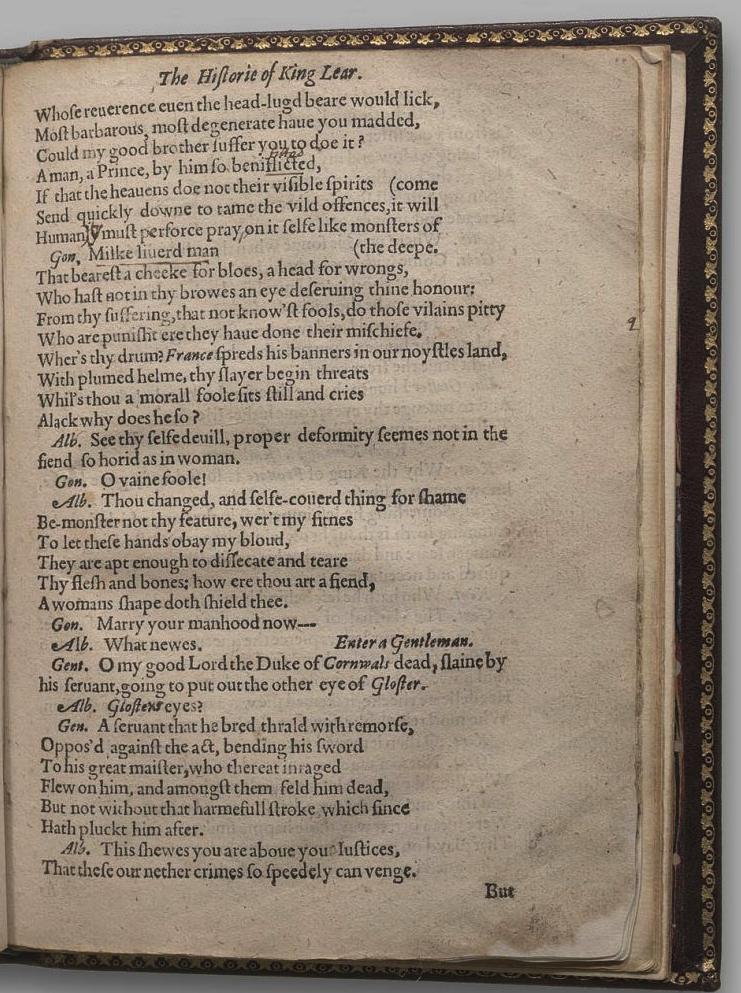 The Hiſtorie of King Lear.
Whoſe reuerence euen the head-lugd beare would lick,
Moſt barbarous, moſt degenerate haue you madded,
Could my good brother ſuffer you to doe it?
A man, a Prince, by him ſo beniflicted,
If that the heauens doe not their viſible ſpirits (come
Send quickly downe to tame the vild offences, it will
Humanly muſt perforce pray on it ſelfe like monſters of
Gon. Milke liuerd man (the deepe.
That beareſt a cheeke for bloes, a head for wrongs,
Who haſt not in thy browes an eye deſeruing thine honour:
From thy ſuffering, that not know'ſt fools, do thoſe vilains pitty
Who are puniſht ere they haue done their miſchiefe,
Wher's thy drum? France ſpreds his banners in our noyſtles land,
With plumed helme, thy ſlayer begin threats
Whil's thou a morall foole ſits ſtill and cries
Alack why does he ſo?
Alb. See thy ſelfe deuill, proper deformity ſeemes not in the
fiend ſo horid as in woman.
Gon. O vaine foole!
Alb. Thou changed, and ſelfe-couerd thing for ſhame
Be-monſter not thy feature, wer't my fitnes
To let theſe hands obay my bloud,
They are apt enough to diſſecate and teare
Thy fleſh and bones; how ere thou art a fiend,
A womans ſhape doth ſhield thee.
Gon. Marry your manhood now---
Alb. What newes. Enter a Gentleman.
Gent. O my good Lord the Duke of Cornwals dead, ſlaine by
his ſeruant, going to put out the other eye of Gloſter.
Alb. Gloſters eyes?
Gen. A ſeruant that he bred thrald with remorſe,
Oppos'd againſt the act, bending his ſword
To his great maiſter, who thereat inraged
Flew on him, and amongſt them feld him dead,
But not without that harmefull ſtroke which ſince
Hath pluckt him after.
Alb. This ſhewes you are aboue you Iuſtices,
That theſe our nether crimes ſo ſpeedely can venge.
But